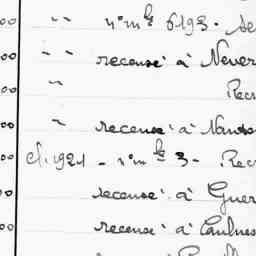 00 " n° mle 6193. 
00 " " recensé à Never
00 " Recr
00 " recensé à Nantes
00 cl. 1921 - n° mle 3 - Recr
00 recensé à Guer
00 recensé à Caulnes